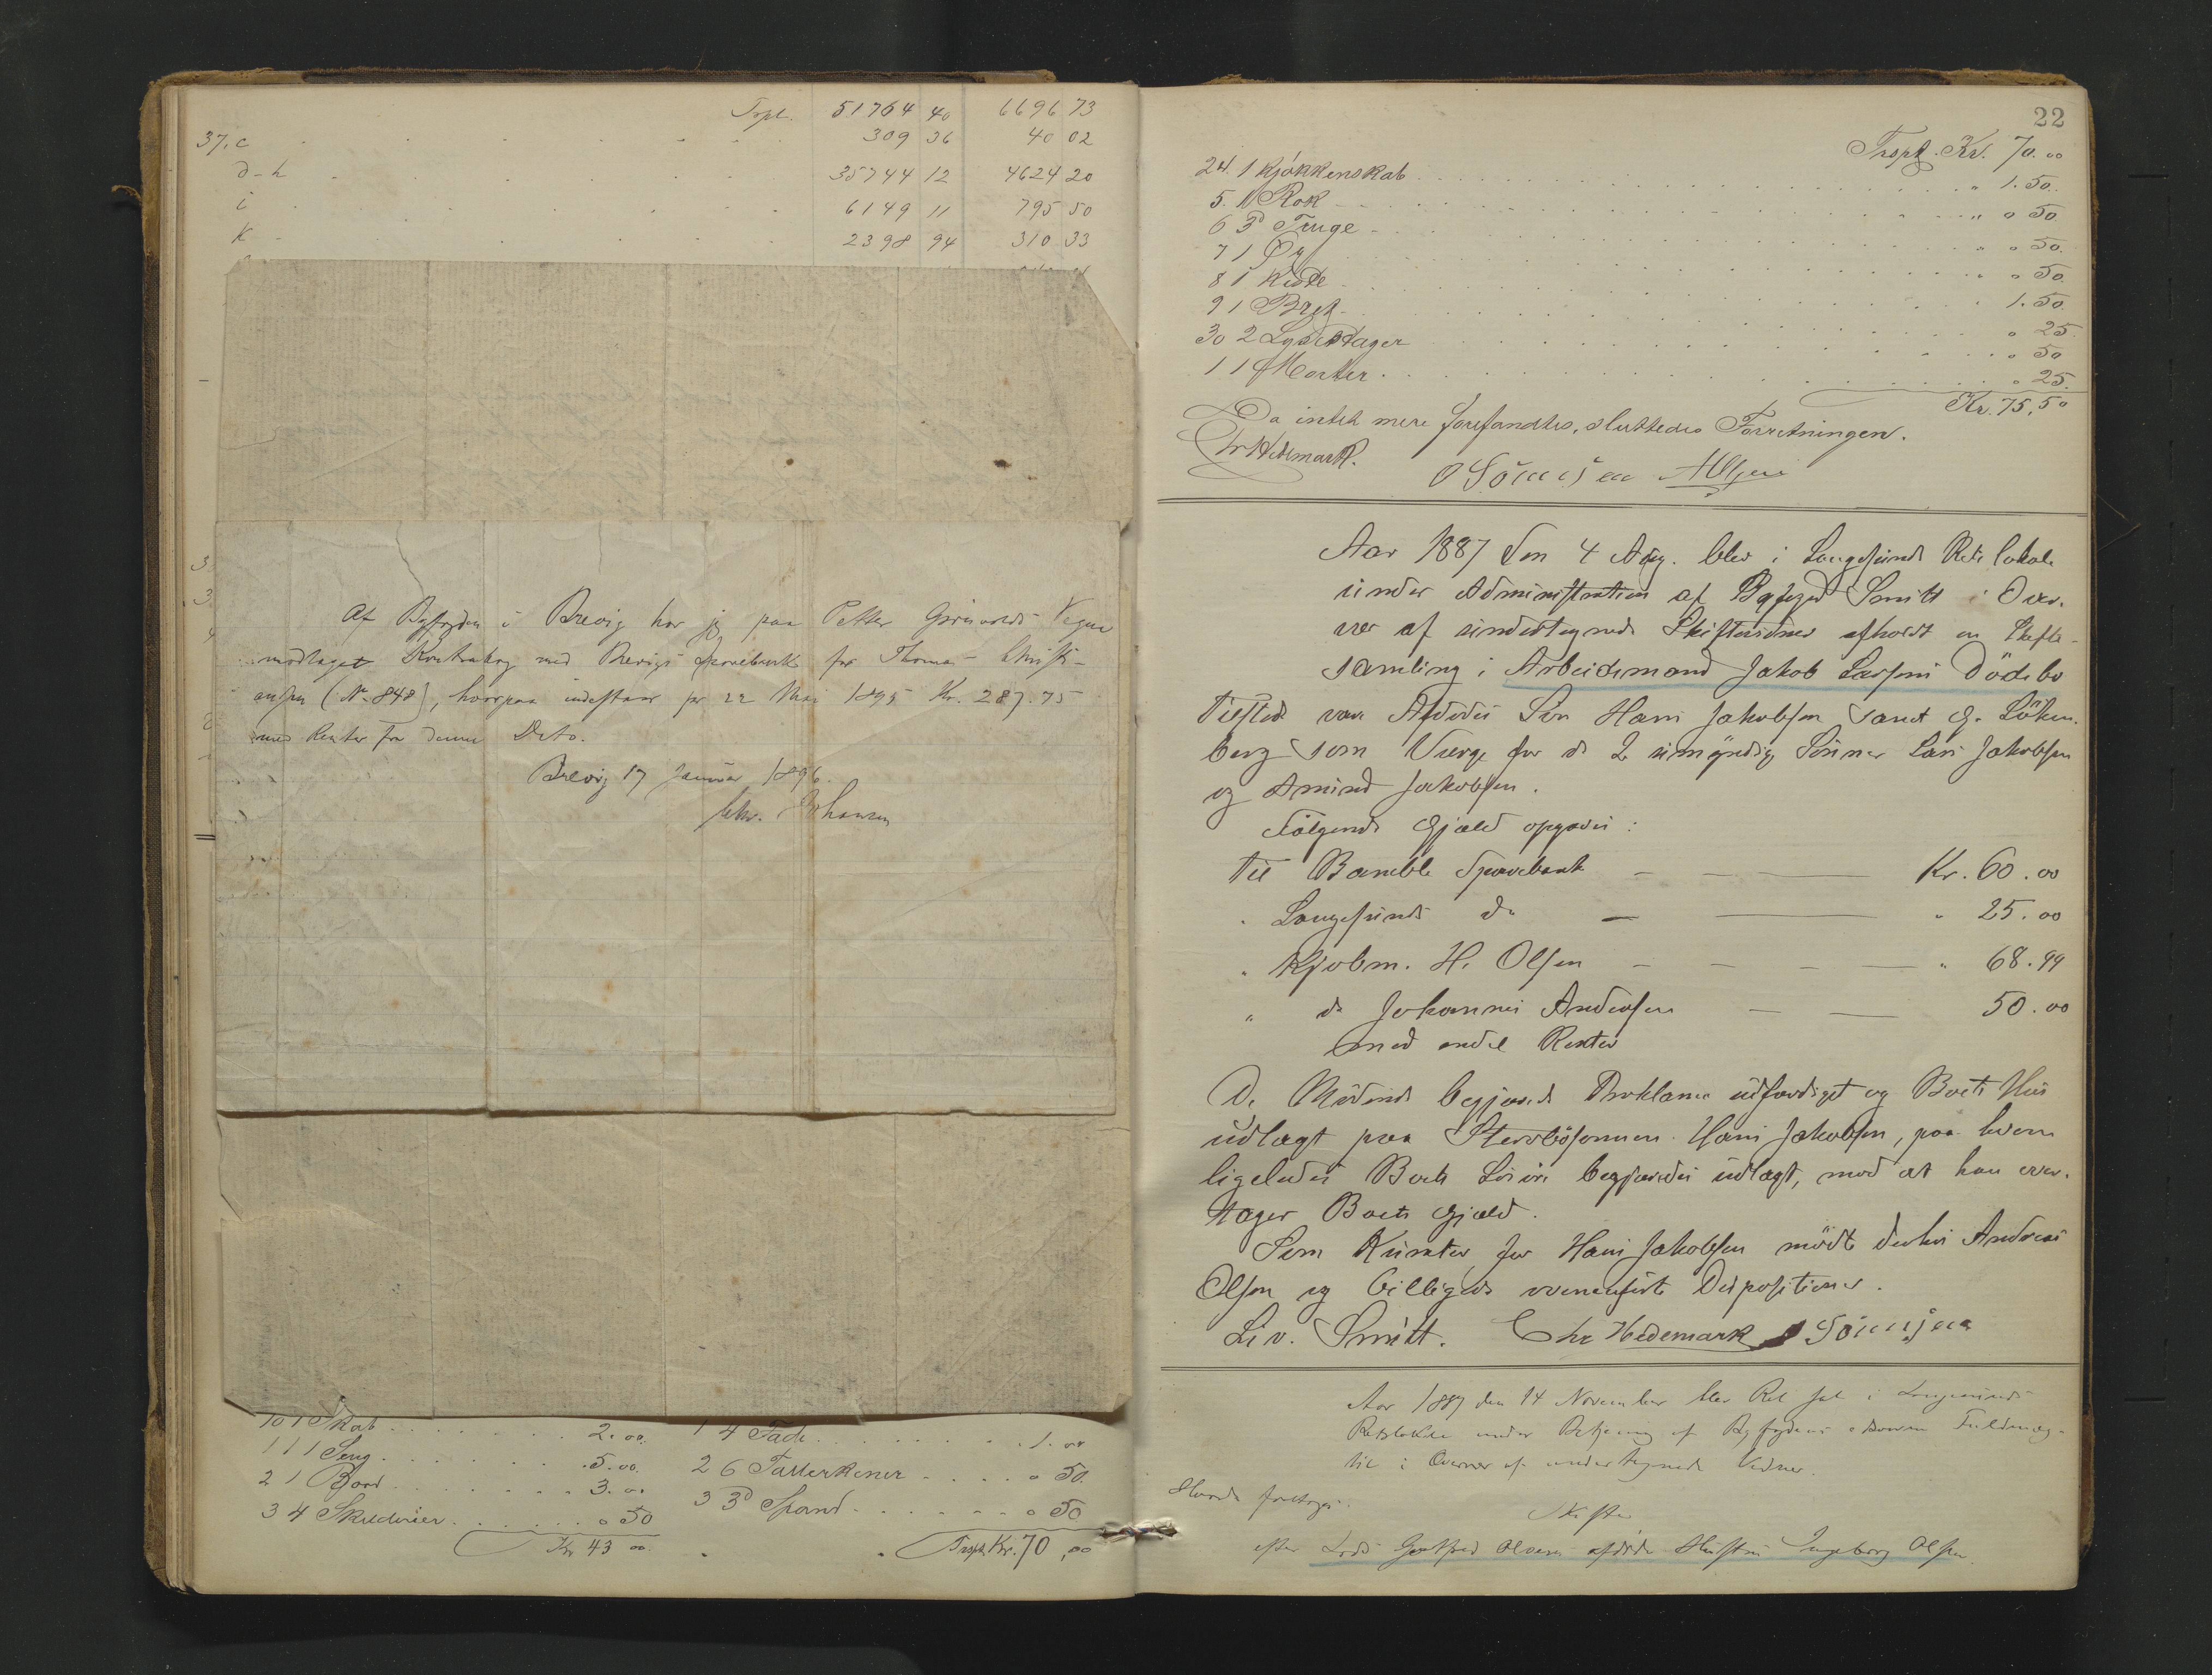 Trpt. 51764 40 6696 73
37. c 309 36 40 02
d-h 35744 12 4624 20
i 6149 11 795 50
k 2398 94 310 33
Af Byfogden i Brevig har jeg paa Petter Vegne
modtaget Kontrabog med Brevigs Sparebank for Thomas Christi-
ansen (No 848), hvorpaa indestaar pr 22 Mai 1895 Kr. 287.75
med Renter fra denne Dato.
Brevig 17 Januar 1896.
Chr. Johansen
10 1 Skab 2.00
11 1 Seng 5.00
2 1 Bord 3.00
3 4 Skilderier " 50
Kr 43 00
1 4 Fade 1.00
2 6 Tallerkener " 50
3 3 Spand " 50
Trsp. Kr. 70,00
22
Trspt. Kr. 70.00
24. 1 Kjøkkenskab " 1.50
5. 1 Rok " " 50
6 3 Tinge " " 50
7 1 " " 50
8 1 Kiste 1.50
9 1 Bret " 25
30 2 Lysestager " 50
1 1 Morter " 25
Kr. 75,50
Da intet mere forefandtes, sluttedes Forretningen.
Chr Hedemark. O Sönnisen
Aar 1887 den 4 Aug. blev i Langesunds Retslokale
under Administration af Byfoged Smitt i Over-
vær af undertegnede Skiftevidner afholdt en Skifte-
samling i Arbeidsmand Jakob Larsens Dødsbo
Tilstede var Afdødes Søn Hans Jakobsen samt G. Löken-
berg som Værge for de 2 umyndige Sønner Lars Jakobsen
og Amund Jakobsen.
Følgende Gjæld opgaves:
Til Bamble Sparebank Kr. 60.00
" Langesunds do " 25.00
" Kjøbm. H. Olsen " 68.99
" do Johannes Andersen 50.00
med endel Renter
De Mødende begjærede Proklama udfærdiget og Boets Hus
udlagt paa Stervbosønnen Hans Jakobsen, paa hvem
ligeledes Boets Løsøre begjæredes udlagt, mod at han over-
tager Boets Gjæld.
Som Kurator for Hans Jakobsen mødte derhos Andreas
Olsen og billigede ovenanførte Dispositioner.
Liv. Smitt. Chr Hedemark O Sönnisen
Aar 1887 den 14 November blev Ret sat i Langesunds
Retslokale under Betjening af Byfogdens edsvorne Fuldmæg-
tig i Overvær af undertegnede Vidner.
Hvorda foretoges:
Skifte
efter Lods Gotfred Olsens afdøde Hustru Ingeborg Olsen